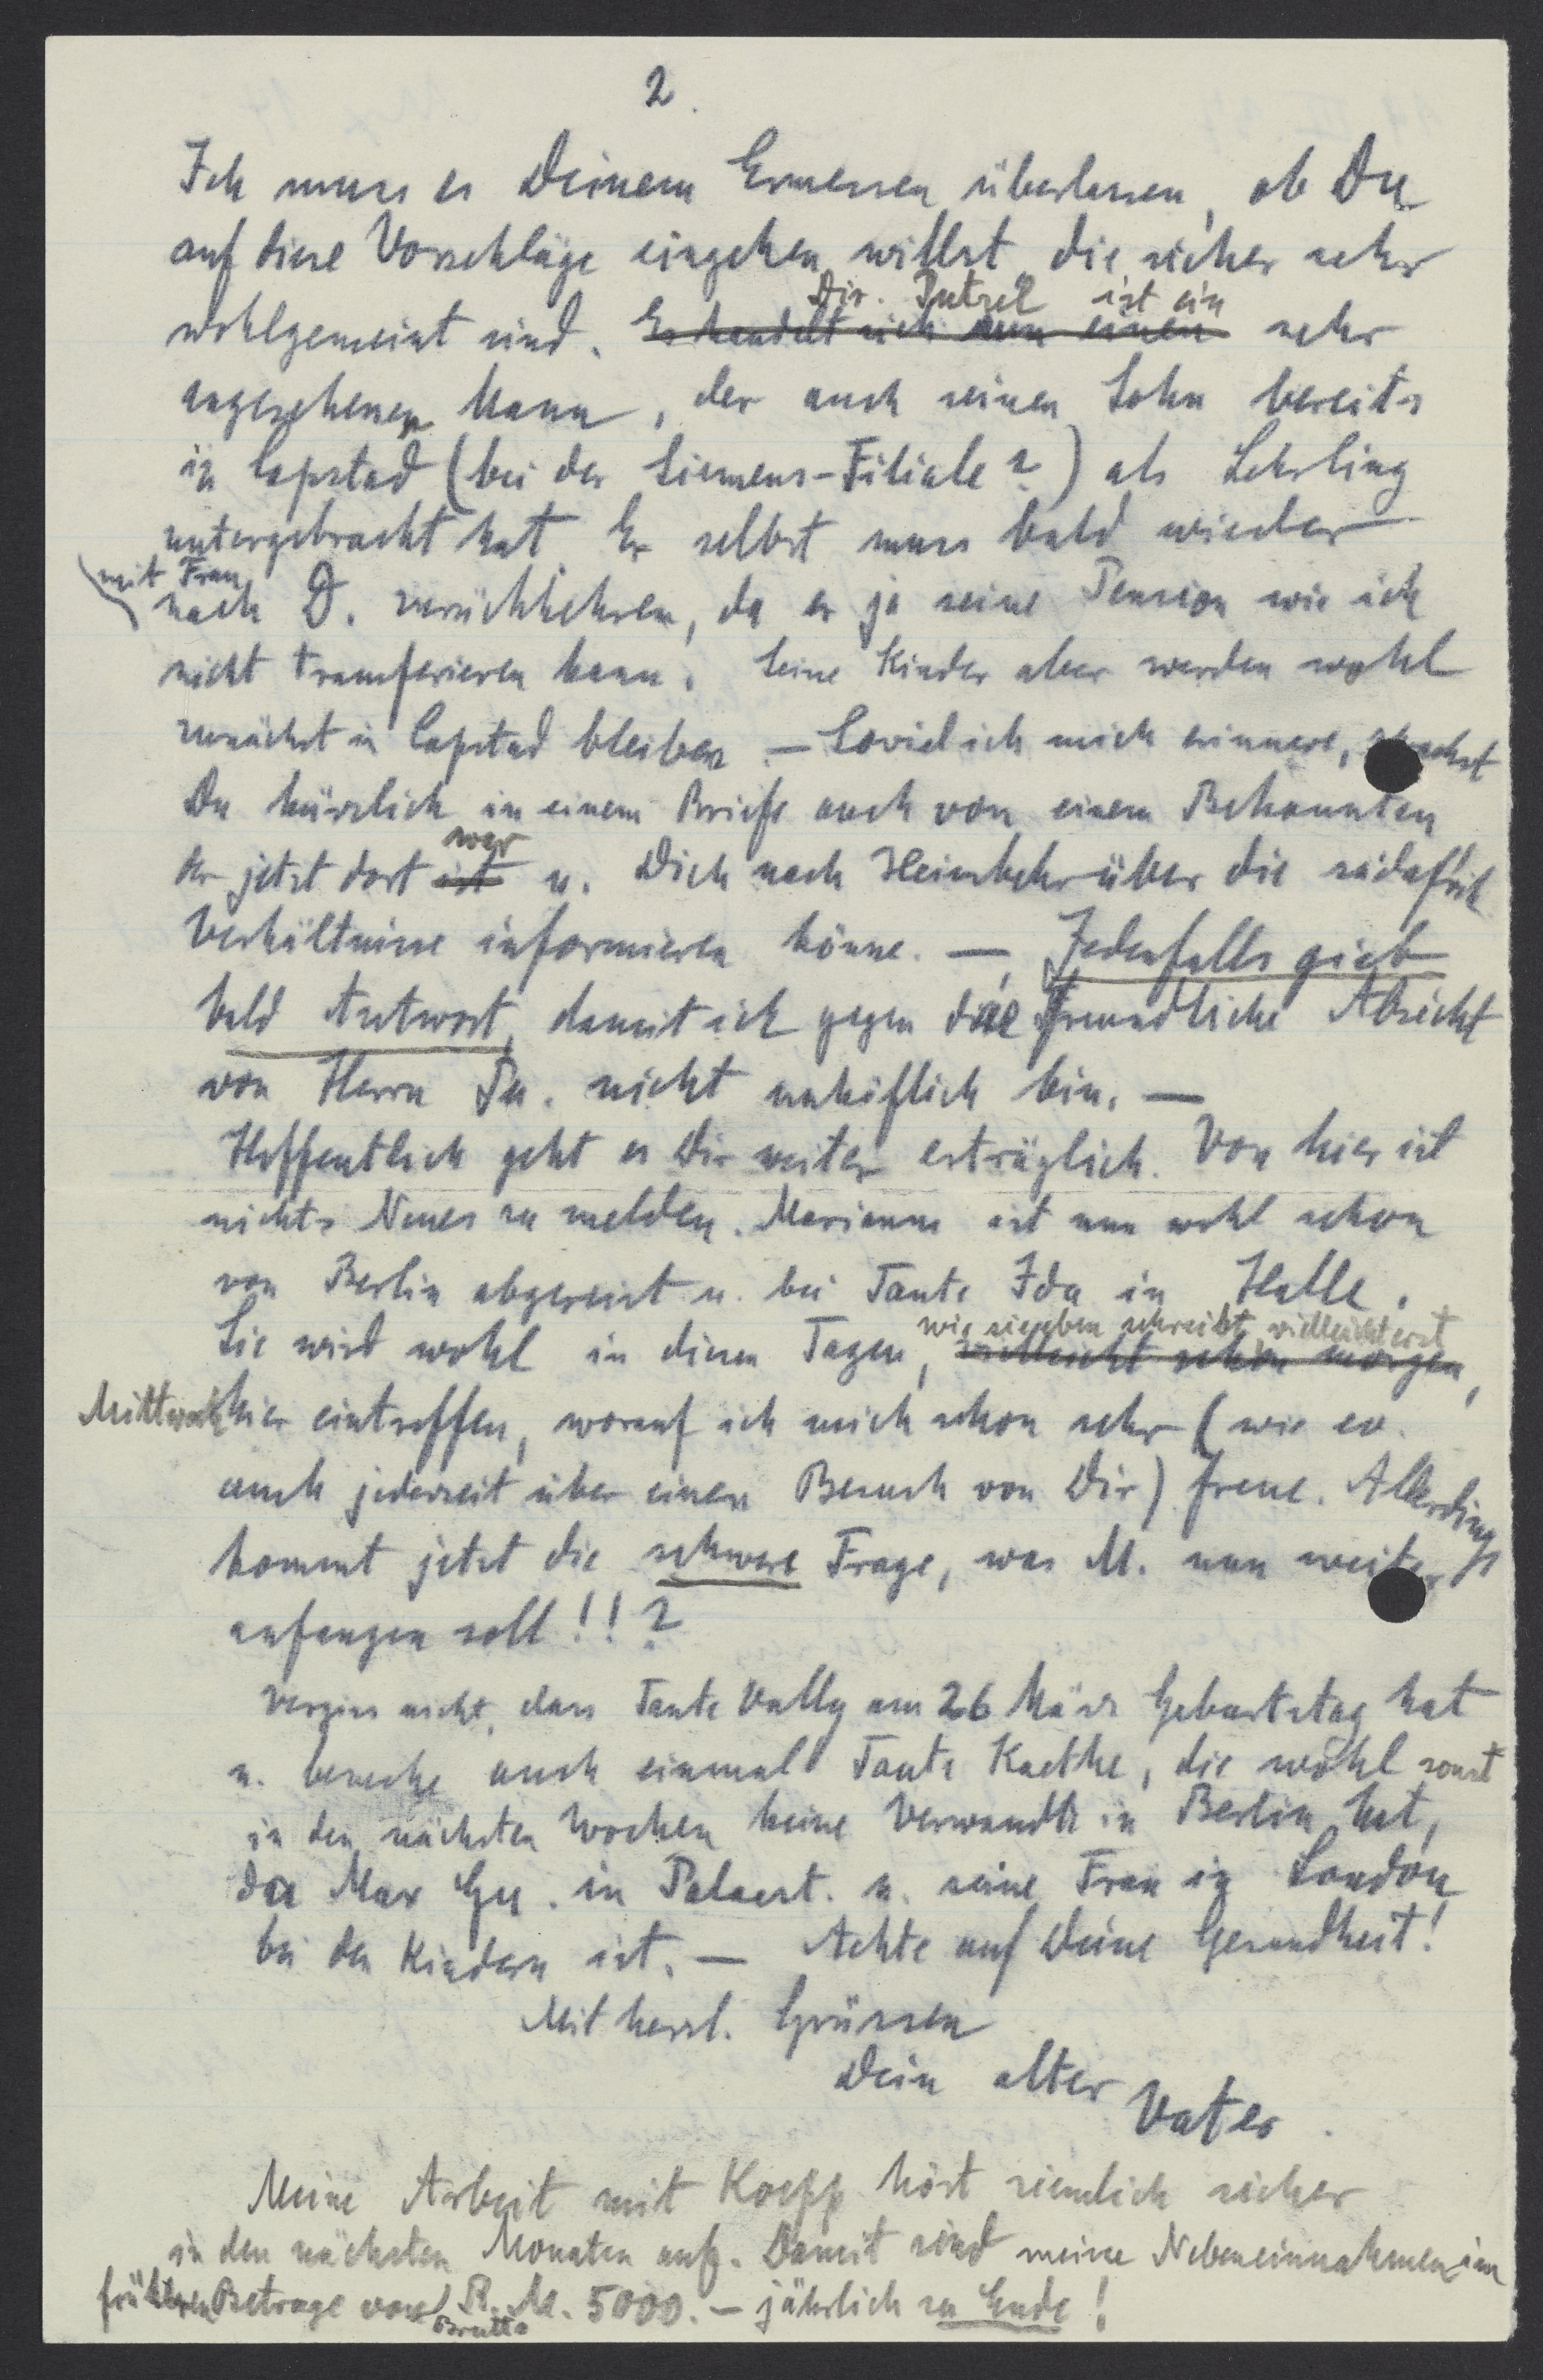 2.
Ich muss es Deinem Ermessen überlassen, ob Du
auf diese Vorschläge eingehen willst, die sicher sehr
Dir. Putzel ist ein
wohlgemeint sind. Es handelt sich um einen sehr
angesehener Mann, der auch seinen Sohn bereits
in Capstad (bei der Siemens-Filiale?) als Lehrling
untergebracht hat. Er selbst muss bald wieder
mit Frau
nach D. zurückkehren, da er ja seine Pension wie ich
nicht transferieren kann. Seine Kinder aber werden wohl
zunächst in Capstad bleiben. — Soviel ich mich erinnere, sprachst
Du kürzlich in einem Briefe auch von einem Bekannten
war
der jetzt dort ist u. Dich nach Heimkehr über die südafrik
Verhältnisse informieren könne. — Jedenfalls gieb
bald Antwort, damit ich gegen die freundliche Absicht
von Herrn Pu. nicht unhöflich bin. —
Hoffentlich geht es Dir weiter erträglich. Von hier ist
nichts Neues zu melden. Marianne ist nun wohl schon
von Berlin abgereist u. bei Tante Ida in Halle.
wie sie eben schreibt, vielleicht erst
Sie wird wohl in diesen Tagen, vielleicht schon morgen,
Mittwoch hier eintreffen, worauf ich mich schon sehr (wie ev.
auch jederzeit über einen Besuch von Dir) freue. Allerdings
kommt jetzt die schwere Frage, was M. nun weiter
anfangen soll!!?
Vergiss nicht, dass Tante Vally am 26 März Geburtstag hat
u. besuche auch einmal Tante Kaethe, die wohl sonst
in den nächsten Wochen keine Verwandte in Berlin hat,
da Max Gu. in Palaest. u. seine Frau in London
bei den Kindern ist. — Achte auf Deine Gesundheit!
Mit herzl. Grüssen
Dein alter Vater.
Meine Arbeit mit Koepp hört ziemlich sicher
in den nächsten Monaten auf. Damit sind meine Nebeneinnahmen im
früheren Betrage von R. M. 5000.— jährlich zu Ende!
Brutto